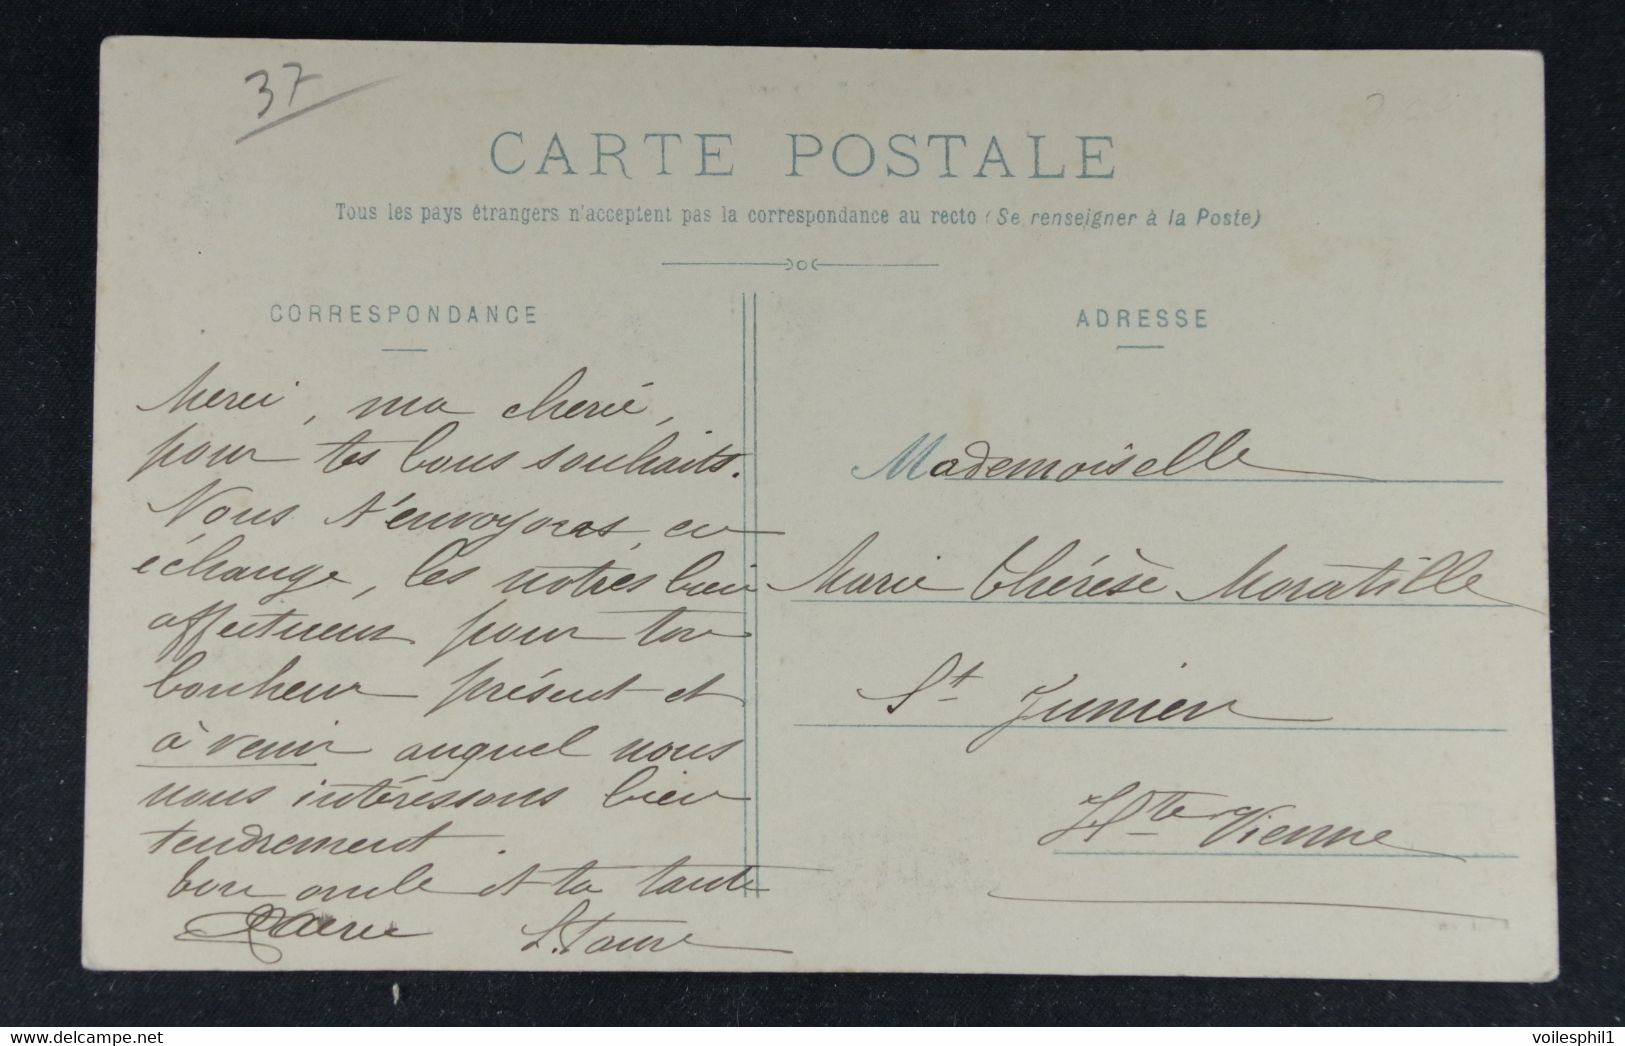 37
CARTE POSTALE
Tous les pays étrangers n'acceptent pas la correspondance au recto (Se renseigner à la Poste)
CORRESPONDANCE
Merci, ma cherie,
pour tes bons souhaits.
Nous t'envoyons, en
échange, les notres bien
affectueux pour ton
bonheur présent et
à venir auquel nous
nous intéressons bien
tendrement.
ton oncle et ta tante
L. Faure
ADRESSE
Mademoiselle
Marie Thérèse Moratille
St Junien
Hte Vienne
voilesphil1